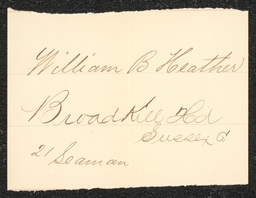 William B Heather
Broadkill Hd
Sussex Co
21 Seaman